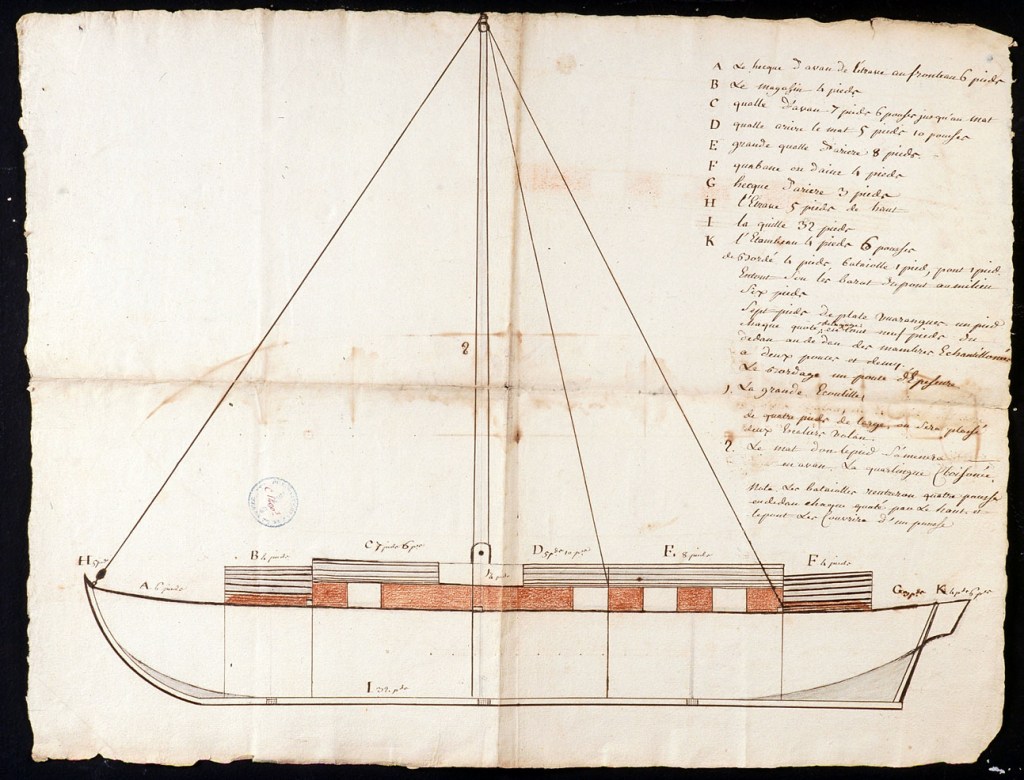 A Le becque d'avan de l'étrave au fronteau 6 pieds
B Le magasin 4 pieds
C qualle d'avan 7 pieds 6 pouses jusqu'au mat
D qualle ariere le mat 5 pieds 10 pouses
E grande qualle d'ariere 8 pieds
F quabane ou 4 pieds
G becque d'ariere 3 pieds
H l'Etrave 5 pieds de haut
I la quille 32 pieds
K l'Etambeau 4 pieds 6 pouses
de bordé 4 pieds, bataiolle 1 pied, pont 1 pied.
Entout sou les barot du pont au milieu
Six pieds
Sept pieds de plate varangues un pied
chaque quoté neuf pieds du
dedan au dedan des mambres Echantillonné
a deux pouces et demy.
Le bordage un pouce
1. La grande Ecoutille
de quatre pieds de large, ou sera plassé
deux Escaliers Volan.
2. Le mat don lepied s'amenera
en avan. La quarlingue Cloisonée.
Nota. Les bataiolles rentreron quatre pouses
en dedan chaque quoté par le haut et
le pont Les Couvrira d'un pouse
2
H 5 pds
A 6 pieds
B 4 pieds
C 7 pieds 6 pces
D 5 pds 10 pces
E. 8 pieds
F 4 pieds
G 3 pds
K 4 pds 6 pces
I 32 pds